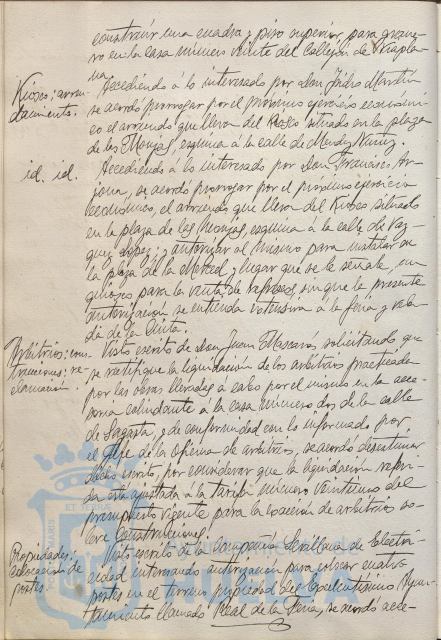 construir una cuadra y piso superior para grane-
ro en la casa número veinte del Callejón de
na.
Kiosco; arren-
damiento.
Accediendo á lo interesado por Don Isidro Martín
se acordó prorrogar por el próximo ejercicio económi-
co el arriendo que lleva del Kiosco situado en la plaza
de las Monjas, esquina á la calle de Mendez Nuñez.
id. id.
Accediendo á lo interesado por Don Francisco
se acordó prorrogar por el próximo ejercicio
económico, el arriendo que lleva del Kiosco situado
en la plaza de las Monjas esquina á la calle de Vaz-
quez Lopez; y autorizar al mismo para instalar en
la plaza de la Merced, y lugar que se le señale, un
quiosco para la venta de refrescos, sin que la presente
autorización se entienda extensiva á la feria y vela-
da de la Cinta.
Arbitrios; cons-
trucciones; re-
clamación.
Visto escrito de Don Juan Mascarós solicitando que
se rectifique la liquidación de los arbitrios practicada
por las obras llevadas á cabo por el mismo en la acce-
soria colindante á la casa número dos de la calle
de Sagasta, y de conformidad con lo informado por
el Jefe de la Oficina de arbitrios, se acordó desestimar
dicho escrito, por considerar que la liquidación referi-
da está ajustada á la tarifa número veintiuno del
presupuesto vigente para la exacción de arbitrios so-
bre Construcciones.
Propiedades;
colocación de
postes.
Visto escrito de la Compañía Sevillana de Electri-
cidad interesando autorización para colocar cuatro
postes en el terreno propiedad del Excelentísimo Ayun-
tamiento llamado Real de la Feria, se acordó acce-
PORTUS MARIS
ET TERRÆ
Ayuntamiento de
Huelva